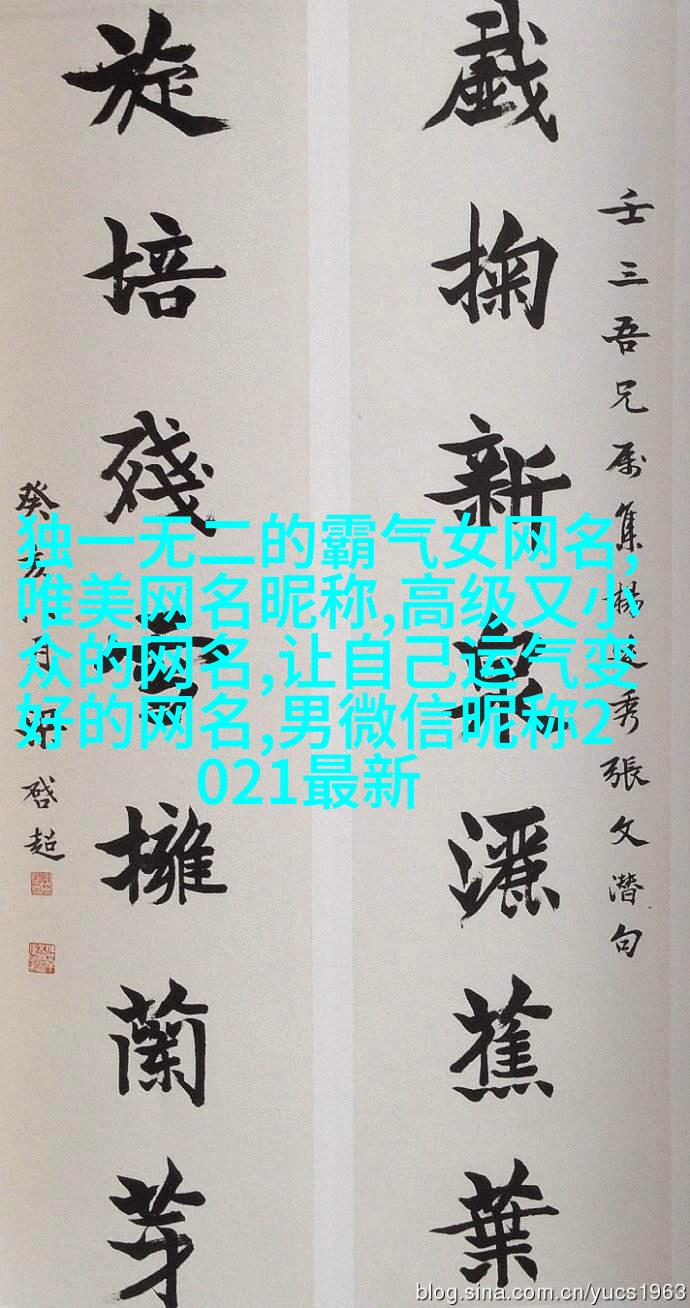 壬三吾兄属集楊廷秀張文潛句
戲掬新泉灑蕉葉
旋培殘雪擁蘭芽
癸亥月梁啓超
独一无二的霸气女网名,
唯美网名昵称,高级又小
众的网名,让自己运气变
好的网名,男微信昵称2
021最新
blog.sina.com.cn/yucs1963